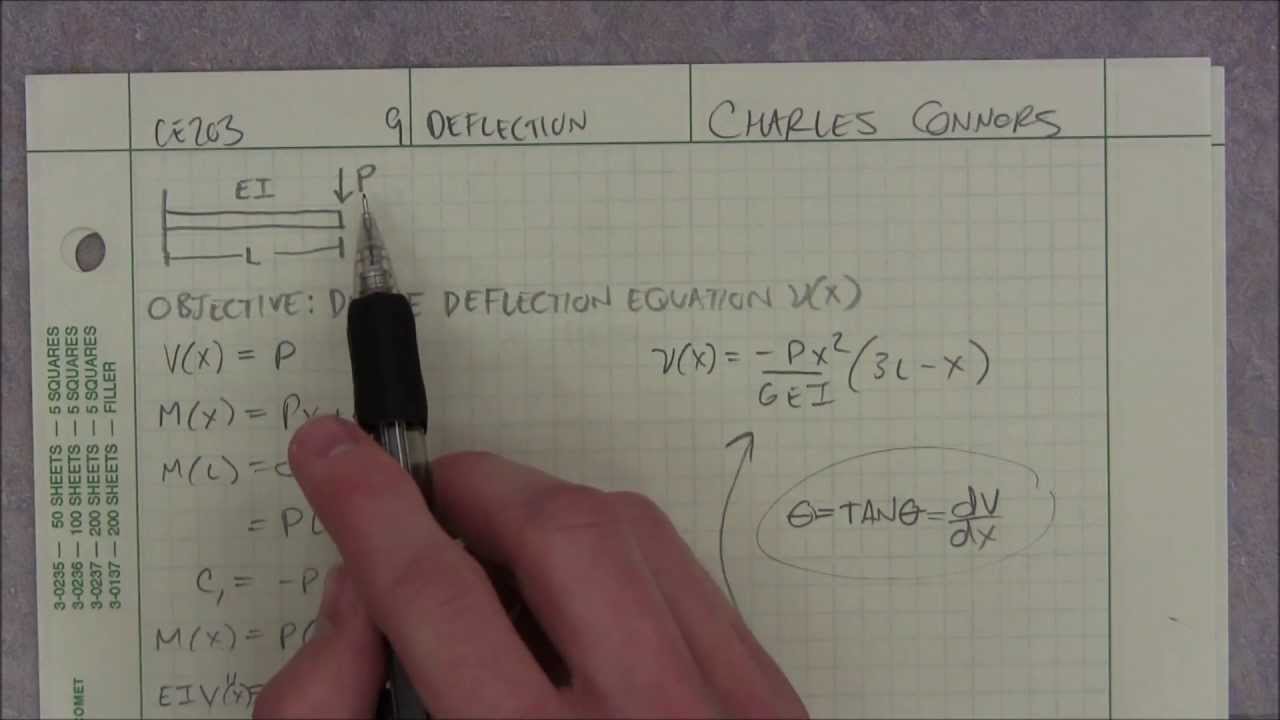 CE203 9 DEFLECTION CHARLES CONNORS
EI P
L
OBJECTIVE: DEFLECTION EQUATION v(x)
V(x) = P
v(x) = -Px²/6EI (3L - x)
M(x) = Px +
M(L) =
= PL
C₁ = -P
M(x) = P(
EIV"(x) =
θ = TANθ = dv/dx
3-0235 — 50 SHEETS — 5 SQUARES
3-0236 — 100 SHEETS — 5 SQUARES
3-0237 — 200 SHEETS — 5 SQUARES
3-0137 — 200 SHEETS — FILLER
COMET